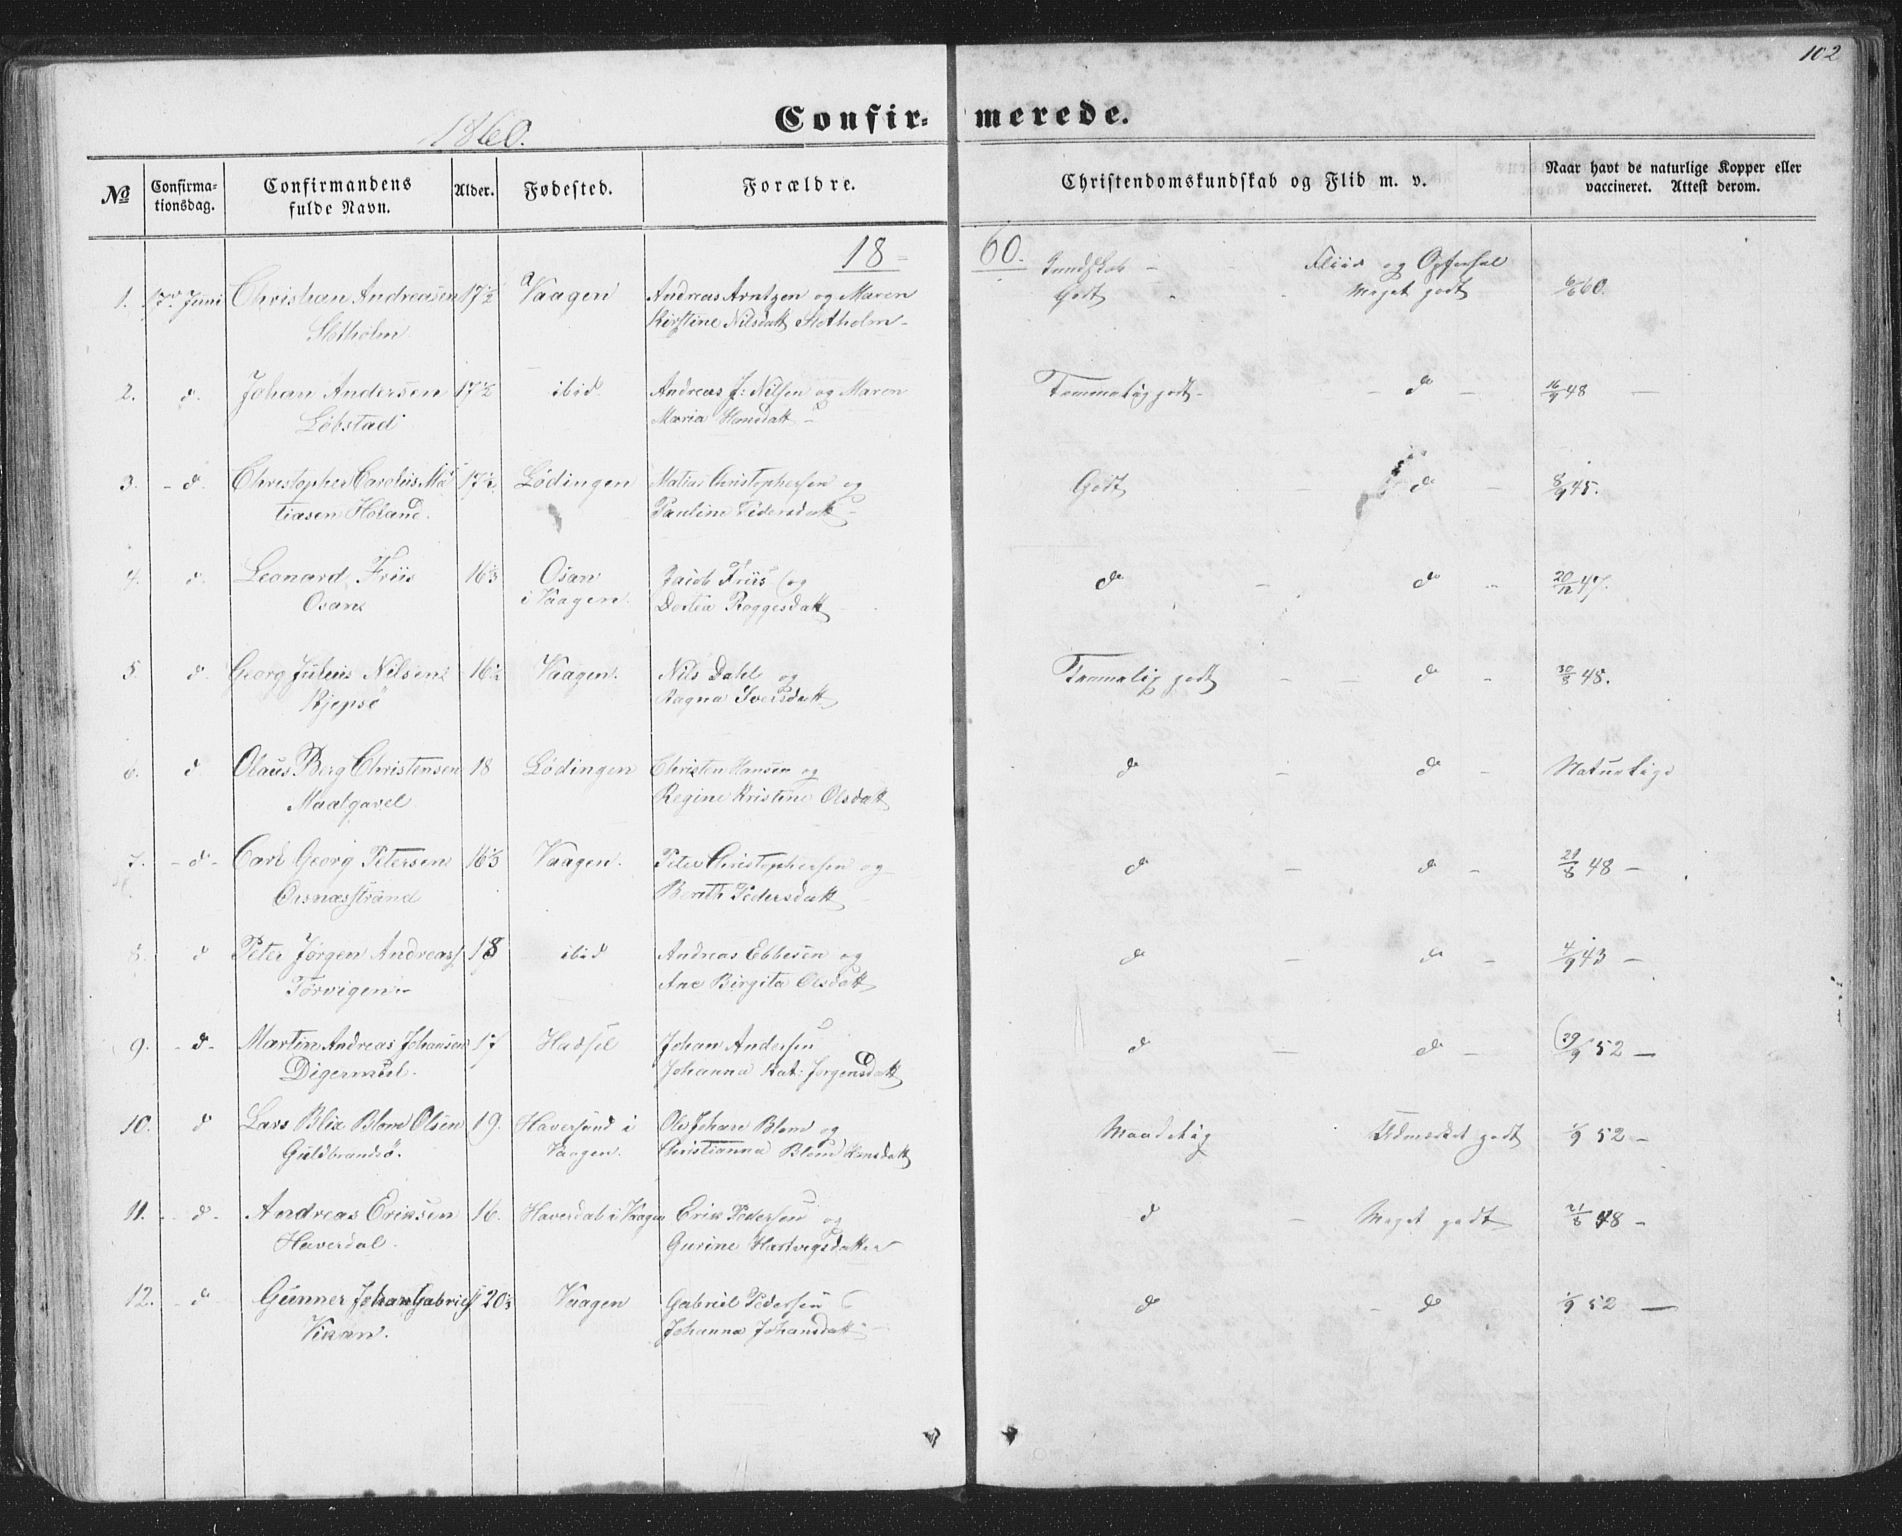 102
1860.
Confir- merede.
No Confirma-tionsdag. Confirmandens fulde Navn. Alder. Fødested. Forældre. Christendomskundskab og Flid m. v. Naar havt de naturlige Kopper eller vaccineret. Attest derom.
18 - 60.
Kundskab - Fliid og Opførsel
1. Juni Christian Andreasen 17½ Vaagen Andreas Arntzen og Maren Godt Meget godt
Slotholm Kirstine Nilsdatt Slotholm -
2. d. Johan Andersen 17½ ibid. Andreas J: Nilsen og Maren Temmelig godt - - d - 16/9 48 -
Löbstad Maria Hansdatt -
3. - d. Christopher Carolus Ma 17½ Lödingen Matias Christophersen og Godt - d - 8/9 45.
tiasen Höland. Pauline Pedersdatt -
4. d. Leonard Friis 16½ Osan Jacob Friis og d - d - 20/12 47.
Osan i Vaagen. Dortea Roggesdatt
5. d. Georg Julius Nilsen 16½ Vaagen. Nils Dahl og Temmelig godt - - d - 30/8 45.
Rjepsö Ragna Iversdatt
6. d Olaus Berg Christensen 18 Lödingen Christen Hansen og d - d - Naturlige
Maalgavel Regine Kristine Olsdatt
7. - d - Carl Georg Petersen 16½ Vaagen. Peter Christophersen og d - d - 21/8 48 -
Örsnæsstrand Berith Pedersdatt
8. d Peter Jørgen Andreass 18 ibid Andreas Ebbesen og d - d - 4/9 43 -
Törvigen Ane Birgita Olsdatt
9. - d - Martin Andreas Johansen 17 Hadsel Johan Andersen d - d - 29/9 52 -
Digermul. Johanna Kat: Jørgensdatt
10. d Lars Blix Blom Olsen 19. Haversand i Ole Johan Blom og Maadelig Udmerket godt 1/9 52 -
Guldbrandsö. Vaagen. Christianna Blom Hansdatt
11. - d - Andreas Eriksen 16. Haverdal i Vaagen Erik Pedersen og d - Meget godt 21/8 48 -
Haverdal. Gurine Hartvigsdatter
12. - d Gunner Johan Gabriels 20½ Vaagen Gabriel Pedersen d - d 1/9 52 -
Vikan. Johanna Johansdatt -